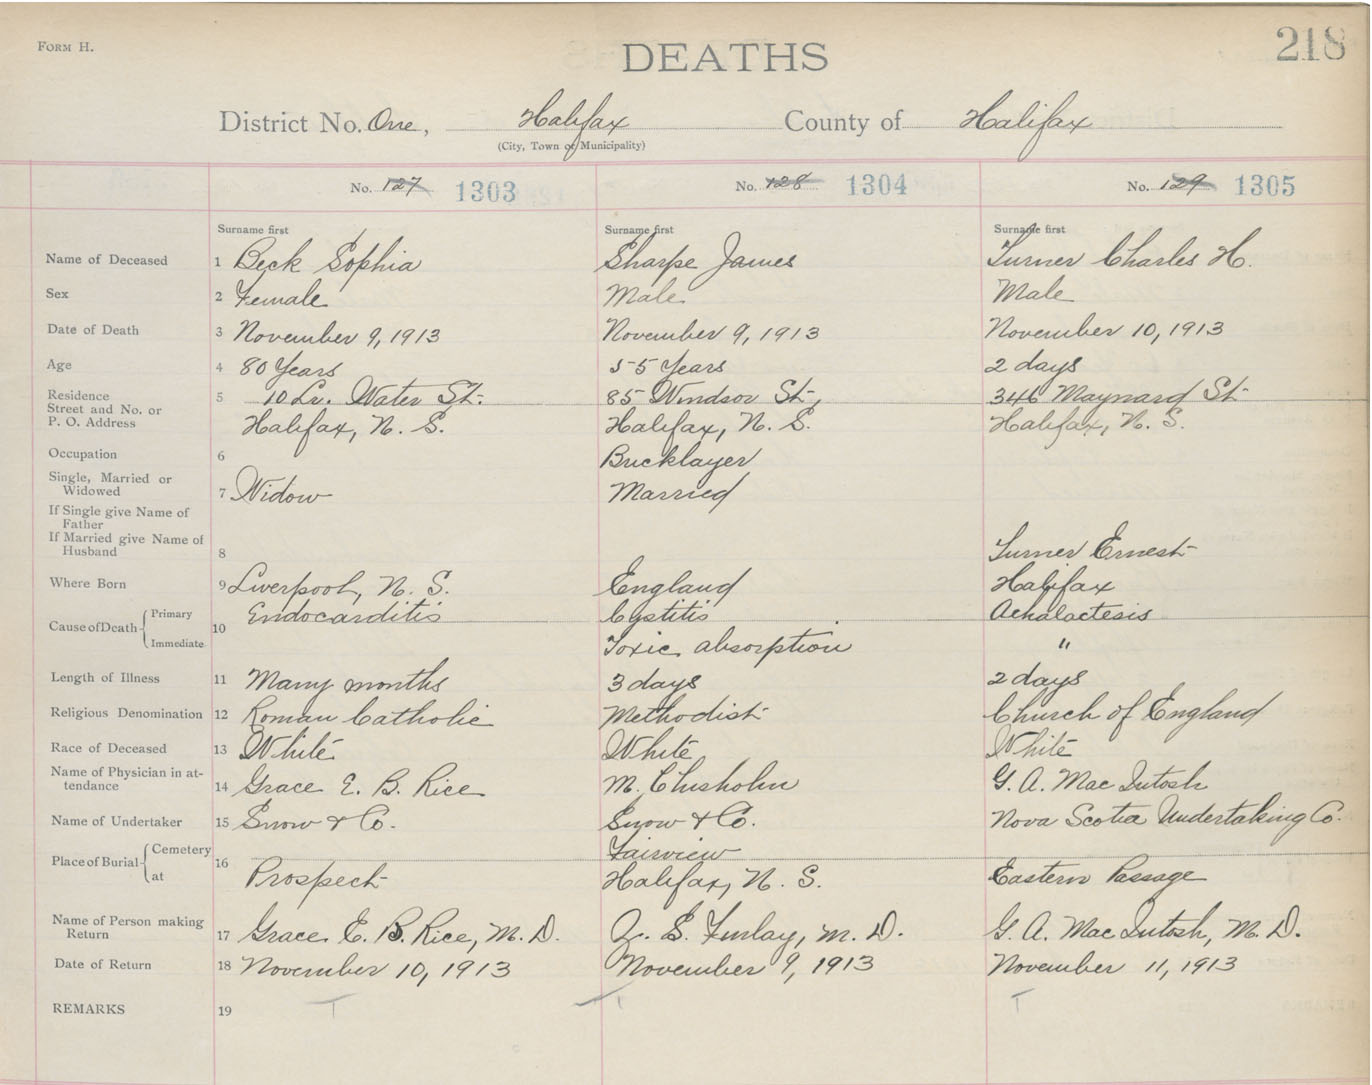 FORM H.
DEATHS
218
District No. One, Halifax County of Halifax
(City, Town or Municipality)
No. 127 1303 No. 128 1304 No. 129 1305
Surname first Surname first Surname first
Name of Deceased 1 Beck Sophia Sharpe James Turner Charles H.
Sex 2 Female Male Male
Date of Death 3 November 9, 1913 November 9, 1913 November 10, 1913
Age 4 80 Years 55 Years 2 days
Residence 5 10 Lr. Water St. 85 Windsor St, 346 Maynard St
Street and No. or
P. O. Address Halifax, N. S. Halifax, N. S. Halifax, N. S.
Occupation 6 Bricklayer
Single, Married or
Widowed 7 Widow Married
If Single give Name of
Father
If Married give Name of
Husband 8 Turner Ernest
Where Born 9 Liverpool, N. S. England Halifax
Cause of Death Primary 10 Endocarditis Cystitis
Immediate Toxic absorption "
Length of Illness 11 Many months 3 days 2 days
Religious Denomination 12 Roman Catholic Methodist Church of England
Race of Deceased 13 White White White
Name of Physician in at-
tendance 14 Grace E. B. Rice M. Chisholm G. A. MacIntosh
Name of Undertaker 15 Snow & Co. Snow & Co. Nova Scotia Undertaking Co.
Place of Burial Cemetery 16 Fairview
at Prospect Halifax, N. S. Eastern Passage
Name of Person making
Return 17 Grace E. B. Rice, M. D. S. Finlay, M. D. G. A. MacIntosh, M. D.
Date of Return 18 November 10, 1913 November 9, 1913 November 11, 1913
REMARKS 19